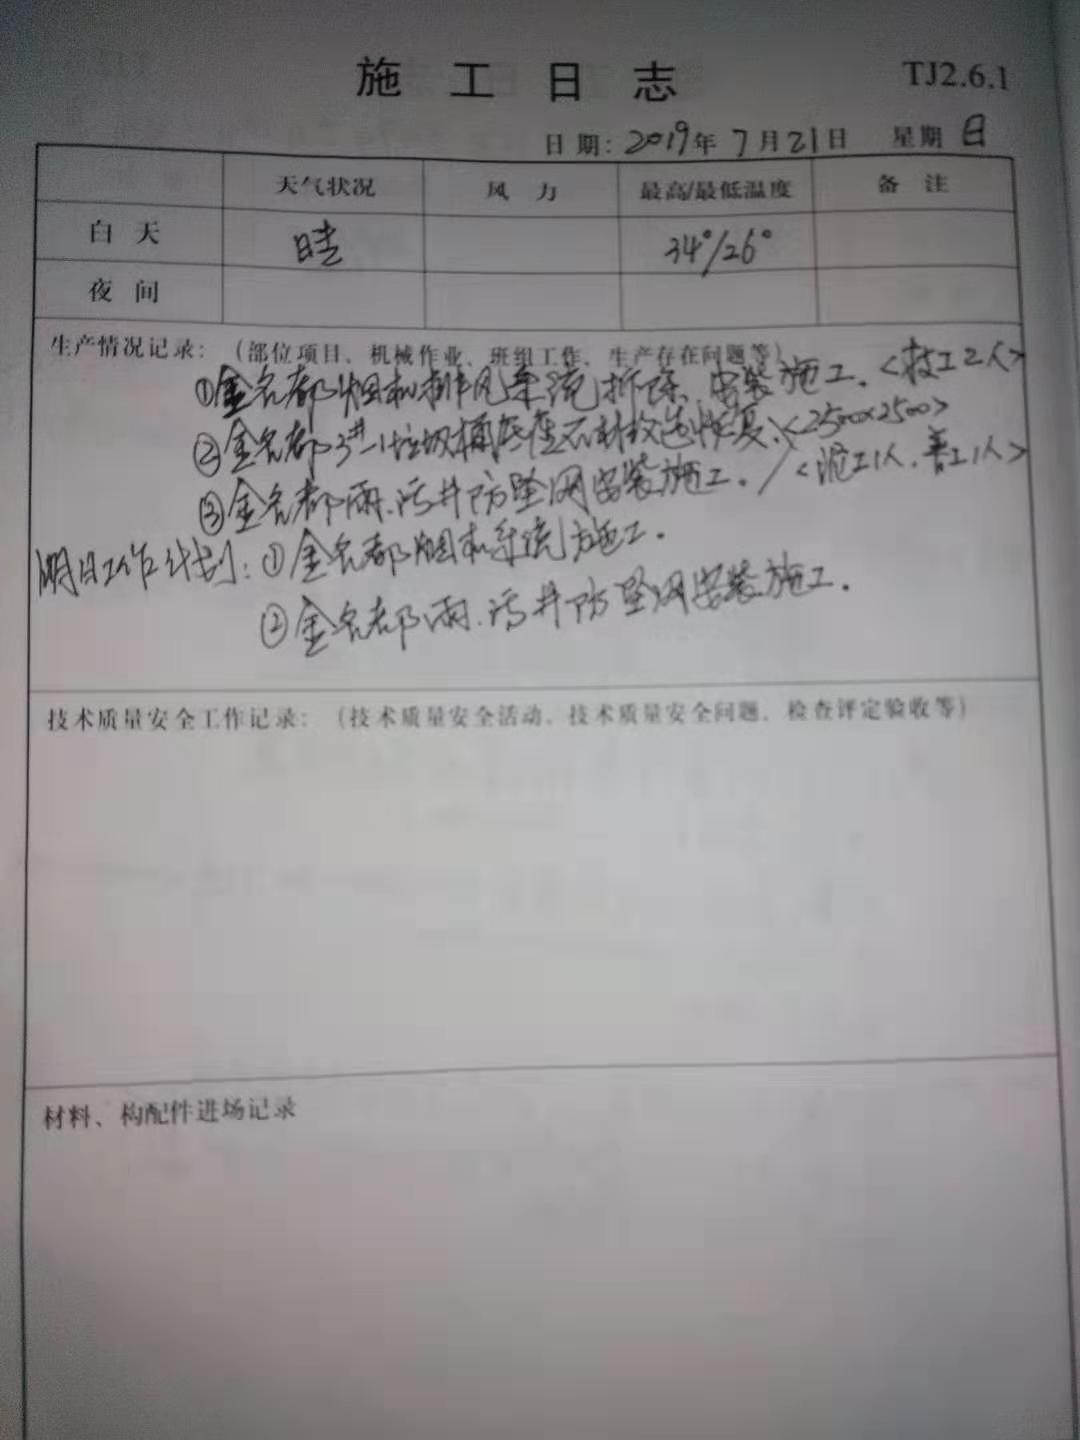 施工日志 TJ2.6.1
日期: 2019年7月21日 星期日
天气状况 风力 最高/最低温度 备注
白天 晴 34°/26°
夜间
生产情况记录：（部位项目、机械作业、班组工作、生产存在问题等）
①金名都烟机排风系统拆除、安装施工.<技工2人>
②金名都3#-1垃圾桶底座石材改造恢复.<2500×2500>
③金名都雨.污井防坠网安装施工. / <泥工1人.普工1人>
明日工作计划:①金名都烟机系统施工.
②金名都雨.污井防坠网安装施工.
技术质量安全工作记录：（技术质量安全活动、技术质量安全问题、检查评定验收等）
材料、构配件进场记录